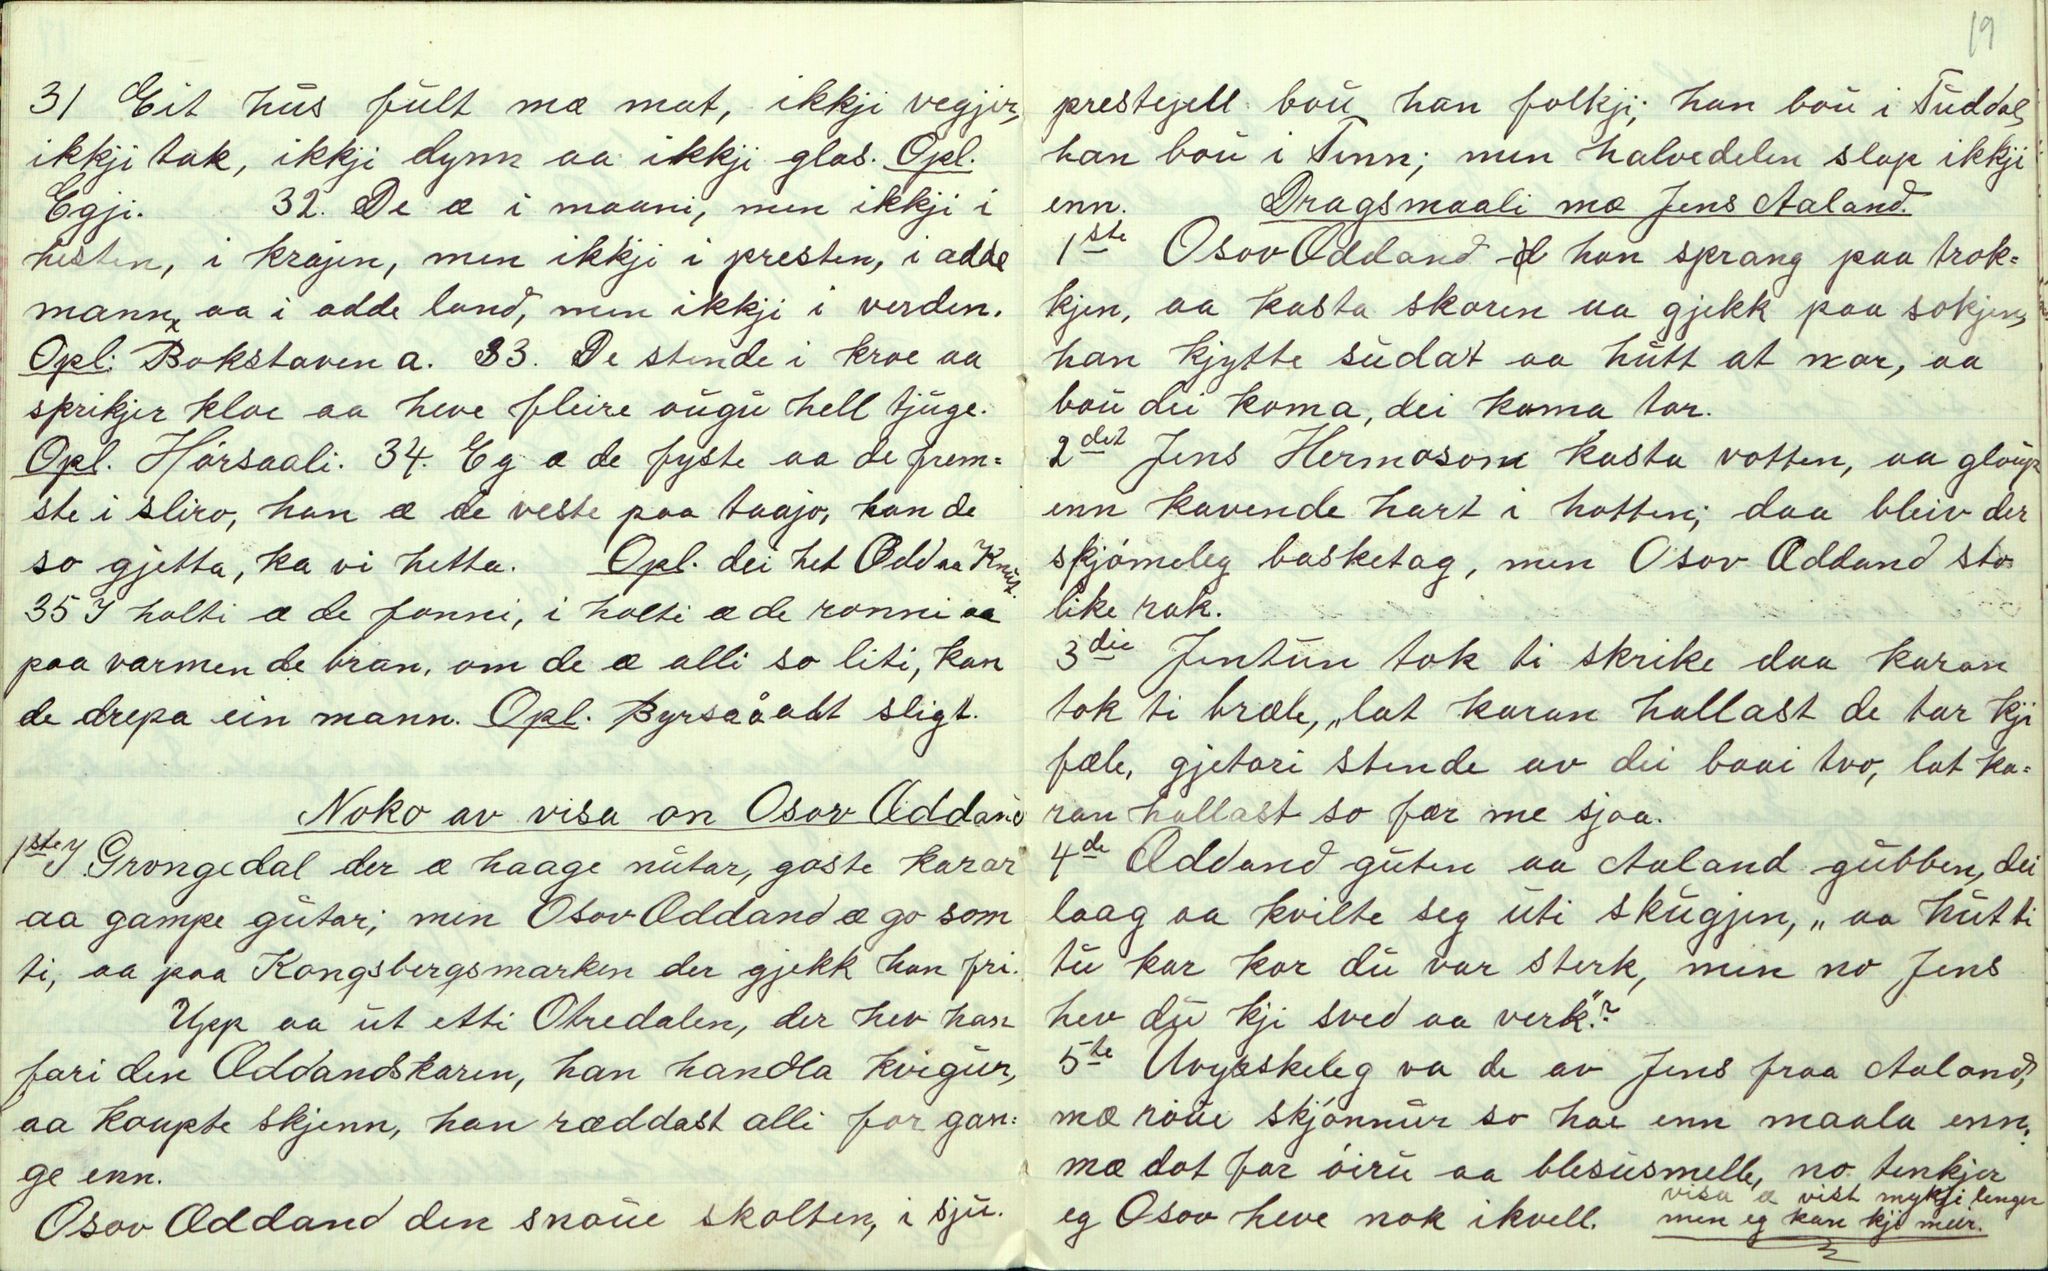 31 Eit hus fult mæ mat, ikkji vegjir,
ikkji tak, ikkji dynn aa ikkji glas. Opl.
Egji. 32. De æ i maani, men ikkji i
hesten, i krajen, men ikkji i presten, i adde
mann, aa i adde land, men ikkji i verden.
Opl: Bokstaven a. 33. De stende i kroe aa
sprikjer kloe aa heve fleire augu hell tjuge.
Opl. Hársaali. 34. Eg æ de fyste aa de frem=
ste i sliro, han æ de veste paa taajo, kan de
so gjetta, ka vi hetta. Opl. dei het Odd aa Knut.
35 I holti æ de fonni, i holti æ de ronni aa
paa varmen de bran, om de æ alli so liti, kan
de drepa ein mann. Opl. Byrsaå alt sligt.
Noko av visa on Osov Øddand
1ste I Grongedal der æ haage nutar, goste karar
aa gampe gutar; men Osov Øddand æ go som
ti, aa paa Kongsbergsmarken der gjekk han fri.
Upp aa ut etti Otredalen, der hev han
fari den Øddandskaren, han handla kvigur,
aa kaupte skjenn, han ræddast alli for gan=
ge enn.
Osov Øddand den snoue skolten, i sju.
19
prestejell bou han folkji; han bou i Tuddal,
han bou i Tinn; men halvedelen slap ikkji
enn. Dragsmaali mæ Jens Aaland.
1ste Osov Øddand han sprang paa trok=
kjen, aa kasta skoren aa gjekk paa sokjen,
han kjytte sudat aa hutt at nor, aa
bou dei koma, dei koma tor.
2det Jens Hermoson kasta votten, aa gloup
enn kavende hart i hotten; daa bleiv der
skjømeleg basketag, men Osov Øddand sto
like rak.
3die Jentun tok ti skrike daa karan
tok ti bræle, „lat karan hallast de tar kji
fæle, gjetori stende av dei baai tvo, lat ka=
ran hallast so fær me sjaa.
4de Øddand guten aa Aaland gubben, dei
laag aa kvilte seg uti skugjen, „aa hut ti
tu kar kor du var sterk, men no Jens
hev du kji sved aa verk."?
5te Uvyrskeleg va de av Jens fraa Aaland,
mæ roue skjónnur so hae enn maala enn,
mæ dat for óiru aa blesusmelle, no tenkjer
eg Osov heve nok ikvell. visa æ vist mykji lenger
men eg kan kji meir.